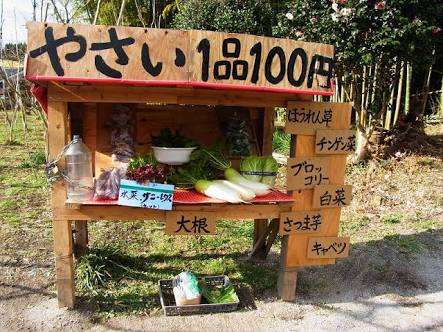 やさい 1品100円
ほうれん草
チンゲン菜
ブロッコリー
白菜
さつま芋
キャベツ
大根
水菜